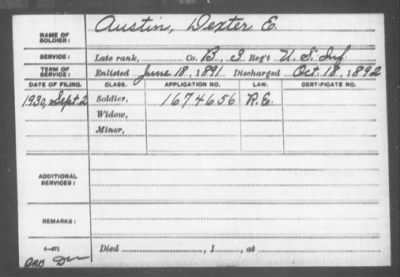 NAME OF SOLDIER: Austin, Dexter E.
SERVICE: Late rank, Co. B, 3 Reg't U.S. Inf
TERM OF SERVICE: Enlisted June 18, 1891 Discharged Oct. 18, 1892
DATE OF FILING. CLASS. APPLICATION NO. LAW. CERTIFICATE NO.
1930, Sept. 2 Soldier, 1674656 R.E.
Widow,
Minor,
ADDITIONAL SERVICES:
REMARKS:
Died , 1 , at